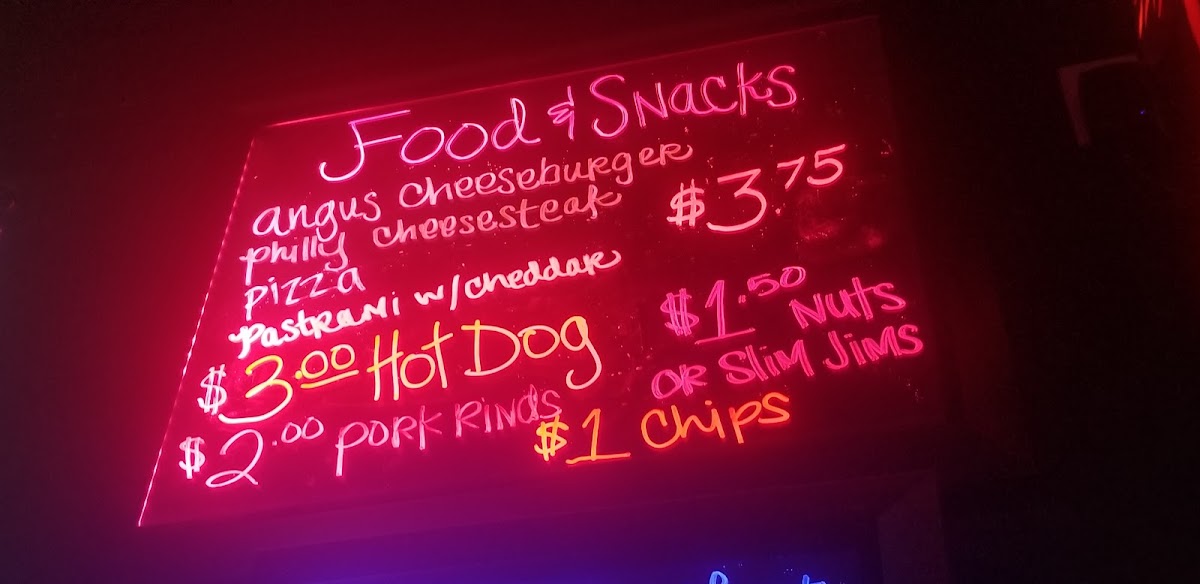 Food & Snacks
angus cheeseburger
philly cheesesteak
$3.75
pizza
pastrami w/cheddar
$3.00 Hot Dog
$1.50 Nuts
or Slim Jims
$2.00 pork rinds
$1 chips